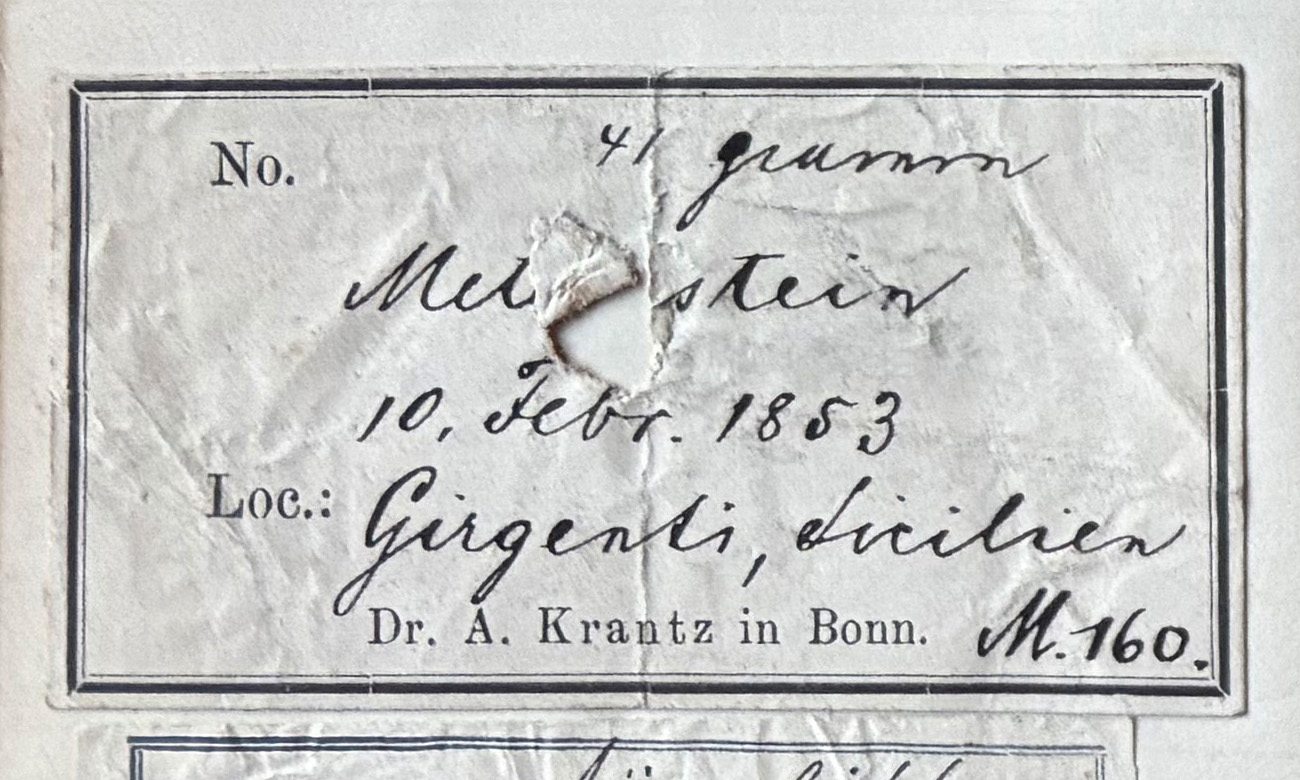 No. 41 gramm
10. Febr. 1853
Loc.: Girgenti, Sicilien
Dr. A. Krantz in Bonn. M. 160.